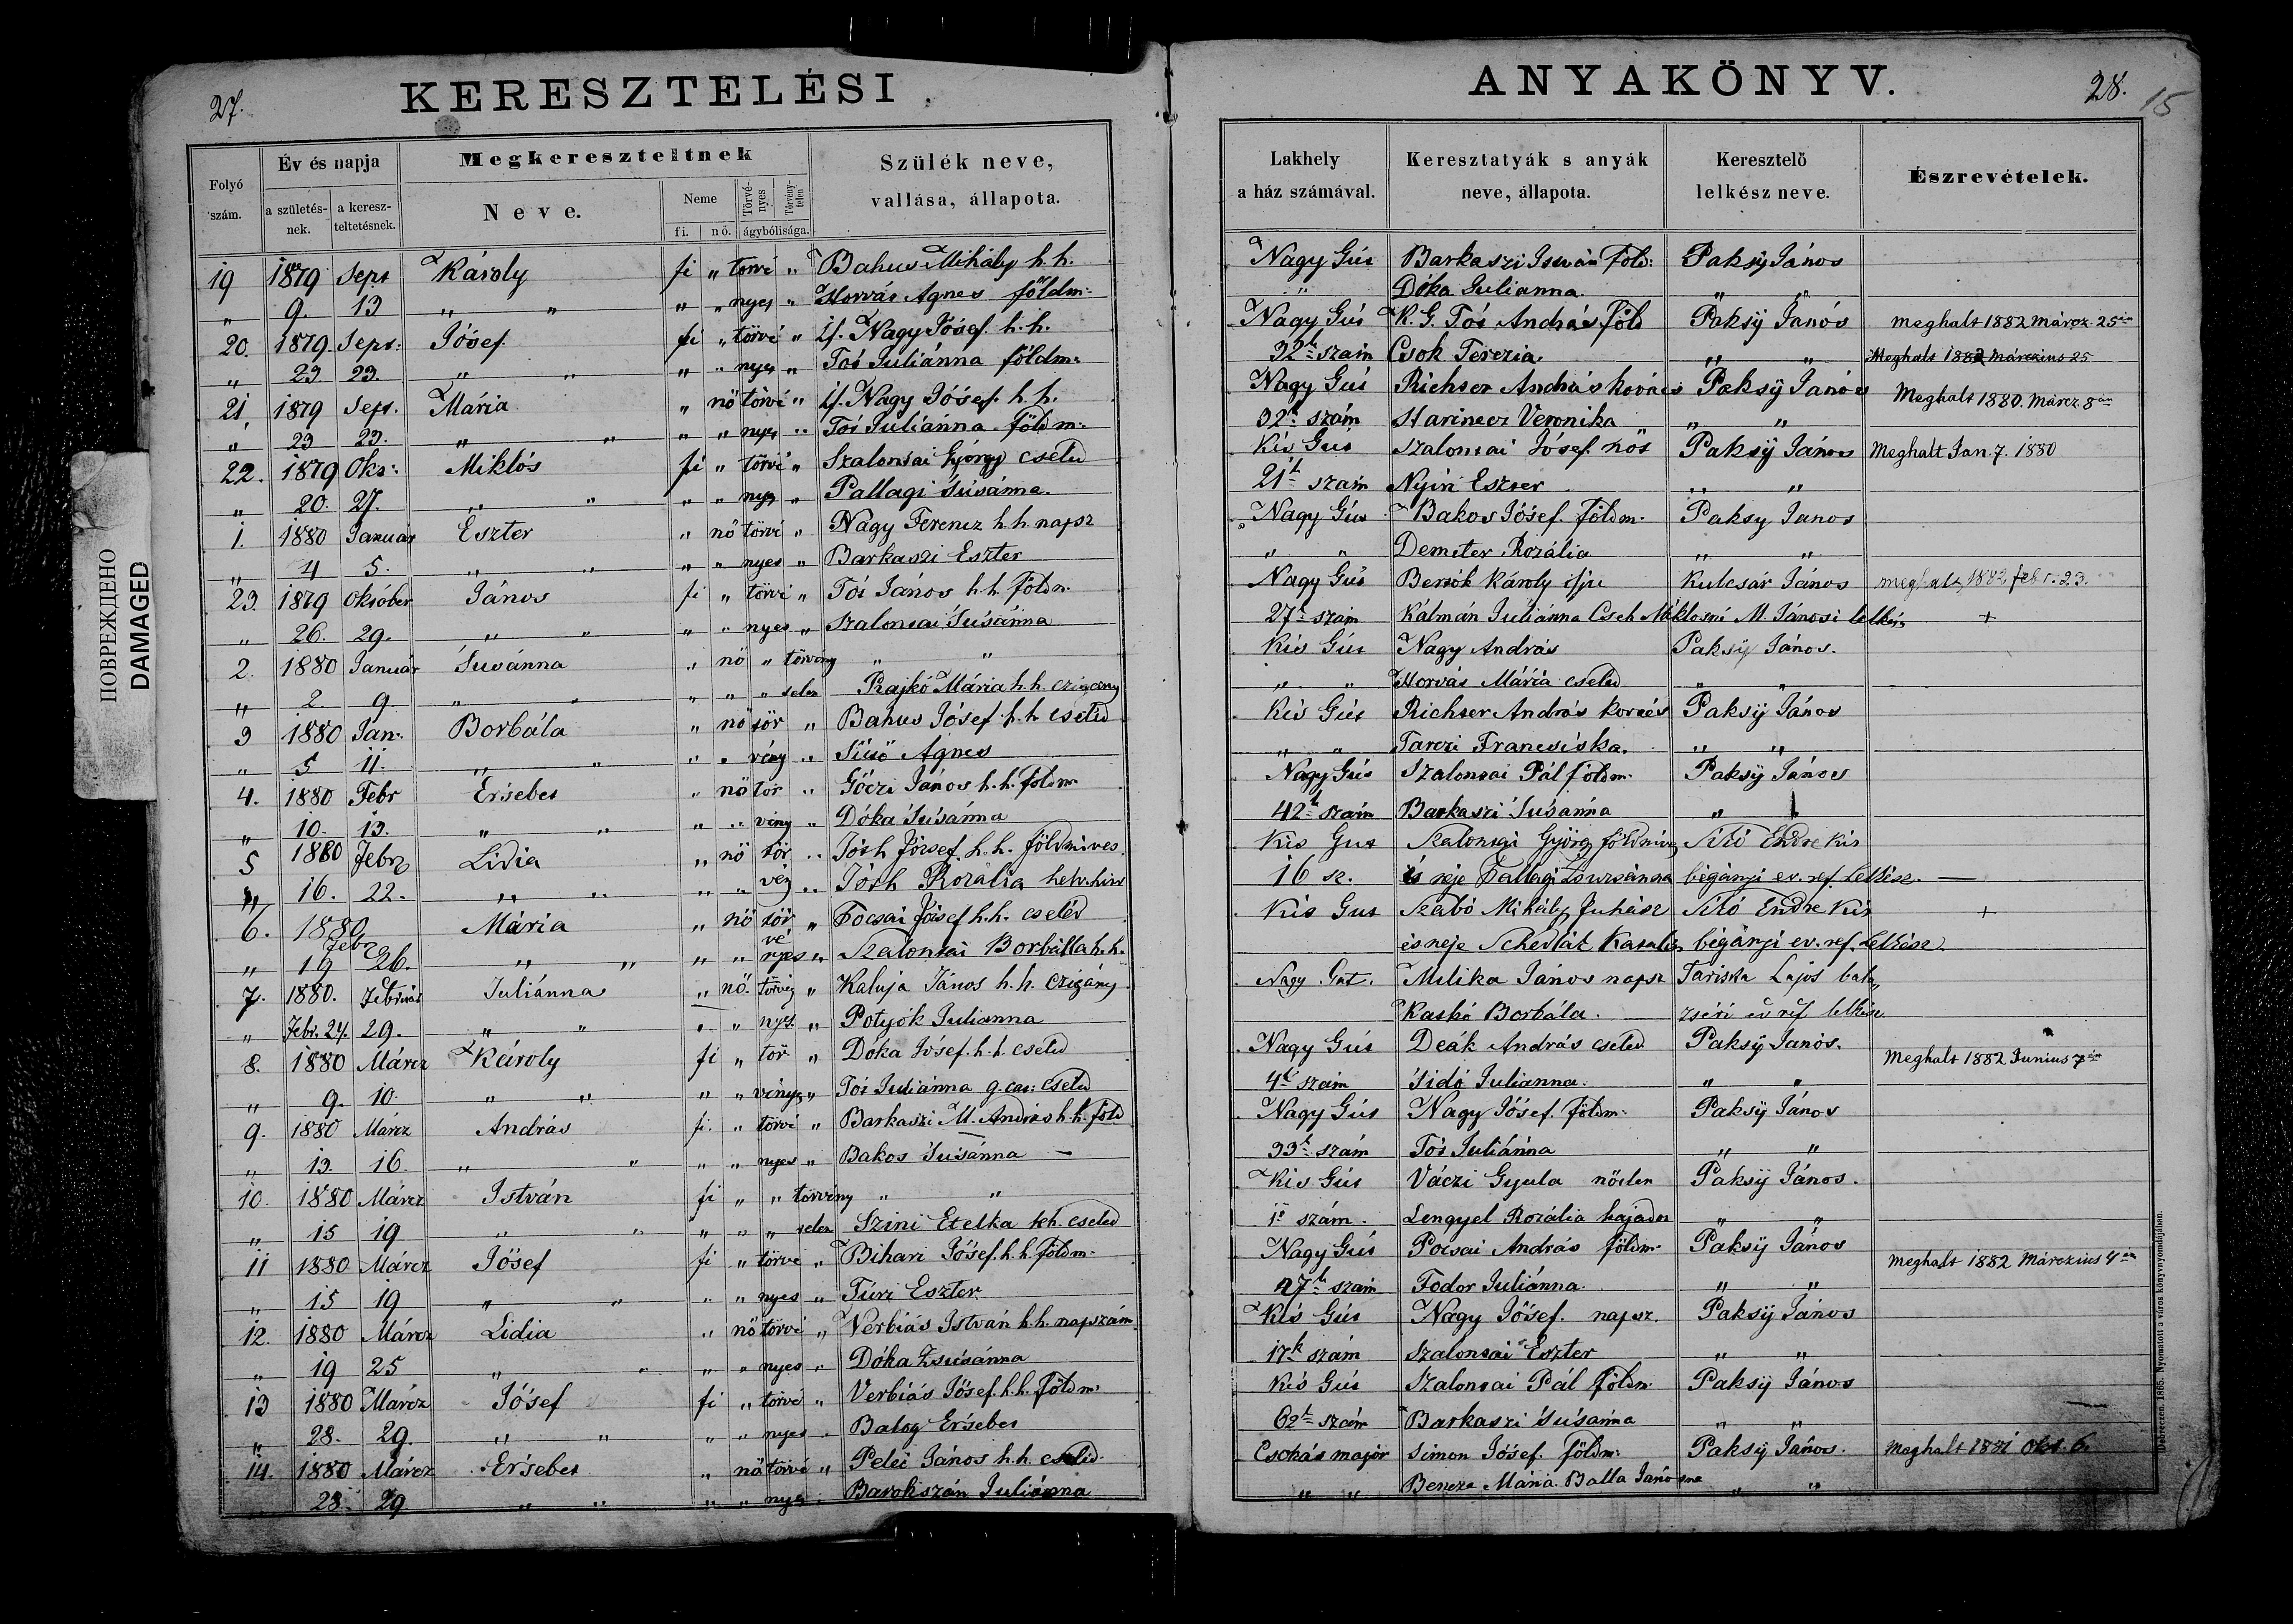 27.
KERESZTELÉSI
Folyó szám.
Év és napja
a születés-nek.
a keresz-teltetésnek.
Megkereszteltnek
Neve.
Neme
fi.
nő.
Törvé-nyes
Törvény-telen
ágybólisága.
Szülék neve,
vallása, állapota.
19 1879 Sept Károly fi „ törvé „ Bahus Mihály h.h.
„ 9. 13 „ „ „ „ nyes „ Horvát Agnes földm:
20. 1879 Sept: Jósef fi „ törvé „ If. Nagy Jósef h.h.
„ 23 23. „ „ „ „ nyes „ Tót Juliánna földm:
21. 1879 Sept. Mária „ nő törvé „ If. Nagy Jósef h.h.
„ 23 23. „ „ „ „ nyes „ Tót Juliánna földm:
22. 1879 Okt: Miklós fi „ törvé „ Szalontai György cseléd
„ 20. 27. „ „ „ „ nyes „ Pallagi Susánna.
1. 1880 Január Eszter „ nő törvé „ Nagy Ferencz h.h. napsz
„ 4 5. „ „ „ „ nyes „ Barkaszi Eszter
23. 1879 Október János fi „ törvé „ Tót János h.h. földm.
„ 26. 29. „ „ „ „ nyes „ Szalontai Susánna
2. 1880 Január Susánna „ nő „ törvény „ „
„ 2. 9 „ „ „ „ „ telen Rajkó Mária h.h. czigány
3 1880 Jan: Borbála „ nő tör „ Bahus Jósef h.h. cseléd
„ 5 11. „ „ „ „ vény „ Sütő Agnes
4. 1880 Febr Ersebet „ nő tör „ Góczi János h.h. földm.
„ 10. 13. „ „ „ „ vény „ Dóka Susánna
5 1880 Febr Lidia „ nő tör „ Tóth József h.h. földmives
„ 16. 22. „ „ „ „ vény „ Tóth Rozália helv. hitv
6. 1880 Mária „ nő tör „ Tocsai József h.h. cseléd
„ Febr 19 26. „ „ „ „ vé nyes „ Szalontai Borbálla h.h.
7. 1880. Február Juliánna „ nő. törvé „ Kaluja János h.h. czigány
„ Febr. 24. 29. „ „ „ „ nyes. „ Potyók Julianna
8. 1880 Márcz Károly fi „ tör „ Dóka Jósef h.h. cseléd
„ 9. 10. „ „ „ „ vényes „ Tót Juliánna g. cat: cseléd
9. 1880 Márcz András fi. „ törvé „ Barkaszi M. András h.h. föld
„ 13. 16. „ „ „ „ nyes „ Bakos Susánna —
10. 1880 Márcz István fi „ „ törvény „ „
„ 15 19 „ „ „ „ „ telen Szini Etelka h.h. cseléd
11 1880 Márcz Jósef fi „ törvé „ Bihari Jósef h.h. földm.
„ 15 19 „ „ „ „ nyes „ Túri Eszter
12. 1880 Márcz Lidia „ nő törvé „ Verbiás István h.h. napszám
„ 19 25 „ „ „ „ nyes „ Dóka Zsusánna
13 1880 Márcz Jósef fi „ törvé „ Verbiás Jósef h.h. földm.
„ 28. 29. „ „ „ „ nyes „ Balog Ersebet
14. 1880 Márcz Ersebet „ nő törvé „ Pelei János h.h. cseléd.
28. 29 „ „ „ „ nyes „ Barokszán Juliánna
ПОВРЕЖДЕНО
DAMAGED
ANYAKÖNYV.
28.
15
Lakhely
a ház számával.
Keresztatyák s anyák
neve, állapota.
Keresztelő
lelkész neve.
Észrevételek.
Nagy Gút Barkaszi István föld: Paksÿ János
„ Dóka Julianna „ „
Nagy Gút K. G. Tót András föld Paksÿ János meghalt 1882 Március 25én
32k szám Csok Terezia. „ „ Meghalt 1882 márczius 25
Nagy Gút Richter András kovács Paksÿ János Meghalt 1880. Márcz. 8án
32k szám Starinecz Veronika „ „
Kis Gút Szalontai Jósef nös Paksÿ János Meghalt Jan. 7. 1880
21k szám Nyiri Eszter „ „
Nagy Gút Bakos Jósef földm. Paksy János
„ „ Demeter Rozália „ „
Nagy Gút Bertók Károly ifju Kulcsár János meghalt 1882 febr. 23.
27k szám Kálmán Juliánna Cseh Miklosné M. Jánosi lelkész +
Kis Gút Nagy András Paksÿ János.
„ „ Horvát Mária cseléd „ „
Kis Gút Richter András kovács Paksÿ János
„ „ Tarczi Francsiska. „ „
Nagy Gút Szalontai Pál földm. Paksÿ János
42k szám Barkaszi Susánna „
Kis Gut Szalontai György földmives Sító Endre kis
16 sz. és neje Pallagi Zsuzsánna bégányi ev. ref. lelkész. —
Kis Gut Szabó Mihály Juhász Sító Endre kis +
és neje Katalin bégányi ev. ref. lelkész.
Nagy Gut. Milika János napsz Tariska Lajos bata„
Kaskó Borbála. ev ref lelkész
Nagy Gút Deák András cseléd Paksÿ János. Meghalt 1882 Junius 7én
4k szám Sidó Julianna. „ „
Nagy Gút Nagy Jósef. földm: Paksÿ János
33k szám Tót Juliánna „ „
Kis Gút Váczi Gyula nőtlen Paksÿ János.
1ő szám. Lengyel Rozália hajadon „ „
Nagy Gút Pocsai András földm. Paksÿ János Meghalt 1882 Márczius 4én
27k szám Fodor Juliánna. „ „
Kis Gút Nagy Jósef. napsz. Paksÿ János
17k szám Szalontai Eszter „ „
Kis Gút Szalontai Pál földm. Paksÿ János
62k szám Barkaszi Susánna „ „
major Simon Jósef. földm: Paksÿ János. Meghalt 1881 Okt. 6.
„ „ Bencze Mária Balla Jánosné „ „
Debreczen. 1865. Nyomatott a város könyvnyomdájában.